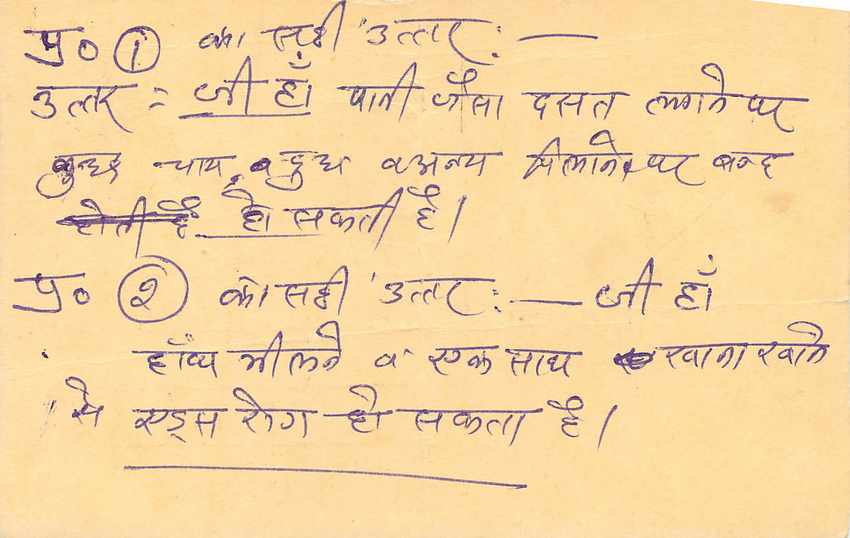 प्र० ① का सही उत्तर :—
उत्तर = जी हाँ पानी जैसा दसत लगने पर
चाय व दुध व अनय मीलाने पर बन्द
होती है हो सकती है।
प्र० ② का सही उत्तर :— जी हाँ
हाँथ मीलाने व एक साथ खाना खाने
से एड्स रोग हो सकता है।